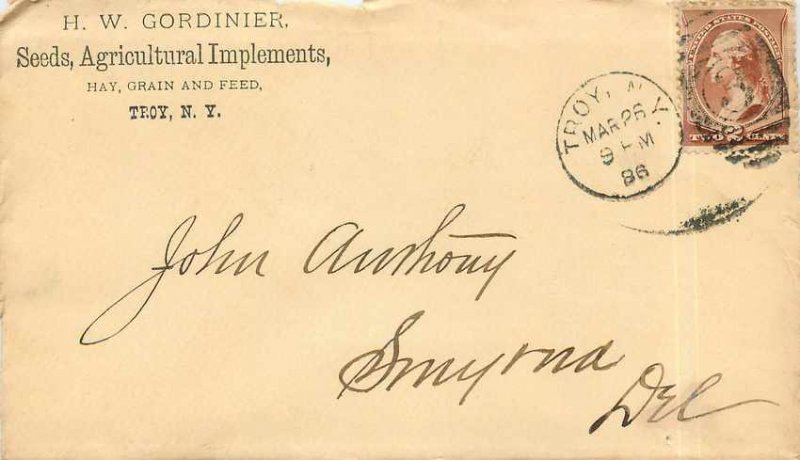 H. W. GORDINIER,
Seeds, Agricultural Implements,
HAY, GRAIN AND FEED,
TROY, N. Y.
UNITED STATES POSTAGE
TWO 2 CENTS
TROY, N.Y.
MAR 26
9 PM
86
John Anthony
Smyrna
Del